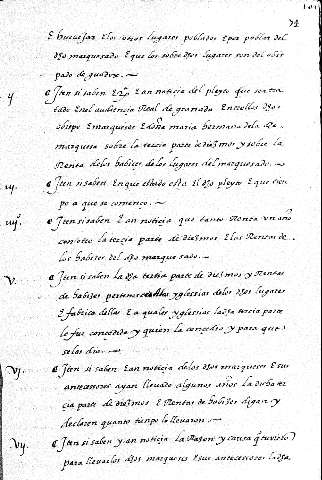 E huecejar E los otros lugares poblados E por poblar del
dho marquesado E que los sobre dhos lugares son del obis
pado de guadix.
Iten si saben E an noticia del pleyto que sea tra
tado En el audiencia Real de granada Entre los dhos
obispo E marqueses E doña maria hermana de la
marquesa sobre la tercia parte de diezmos y sobre la
Renta de los habizes de los lugares del marquesado.
iij. Iten si saben En que estado esta El dho pleyto E que tien
po a que se començo.
iiij. Iten si saben E an noticia que tanto Renta un año
con otro la tercia parte de diezmos E las Rentas de
los habizes del dho marquesado.
V. Iten si saben la dha tercia parte de diezmos y Rentas
de habizes pertenece a las yglesias de los dhos lugares
E fabrica dellas E a quales yglesias la dha tercia parte
le fue concedida y quien la concedio y para que
se las dio.
Vj. Iten si saben E an noticia de los dhos marqueses E sus
antecesores ayan llevado algunos años la dicha ter
cia parte de diezmos E Rentas de habizes digan y
declaren quanto tienpo lo llevaron.
Vij. Iten si saben y an noticia la Razon y causa q tuvieron
para llevarlos dhos marqueses E sus antecesores la dha